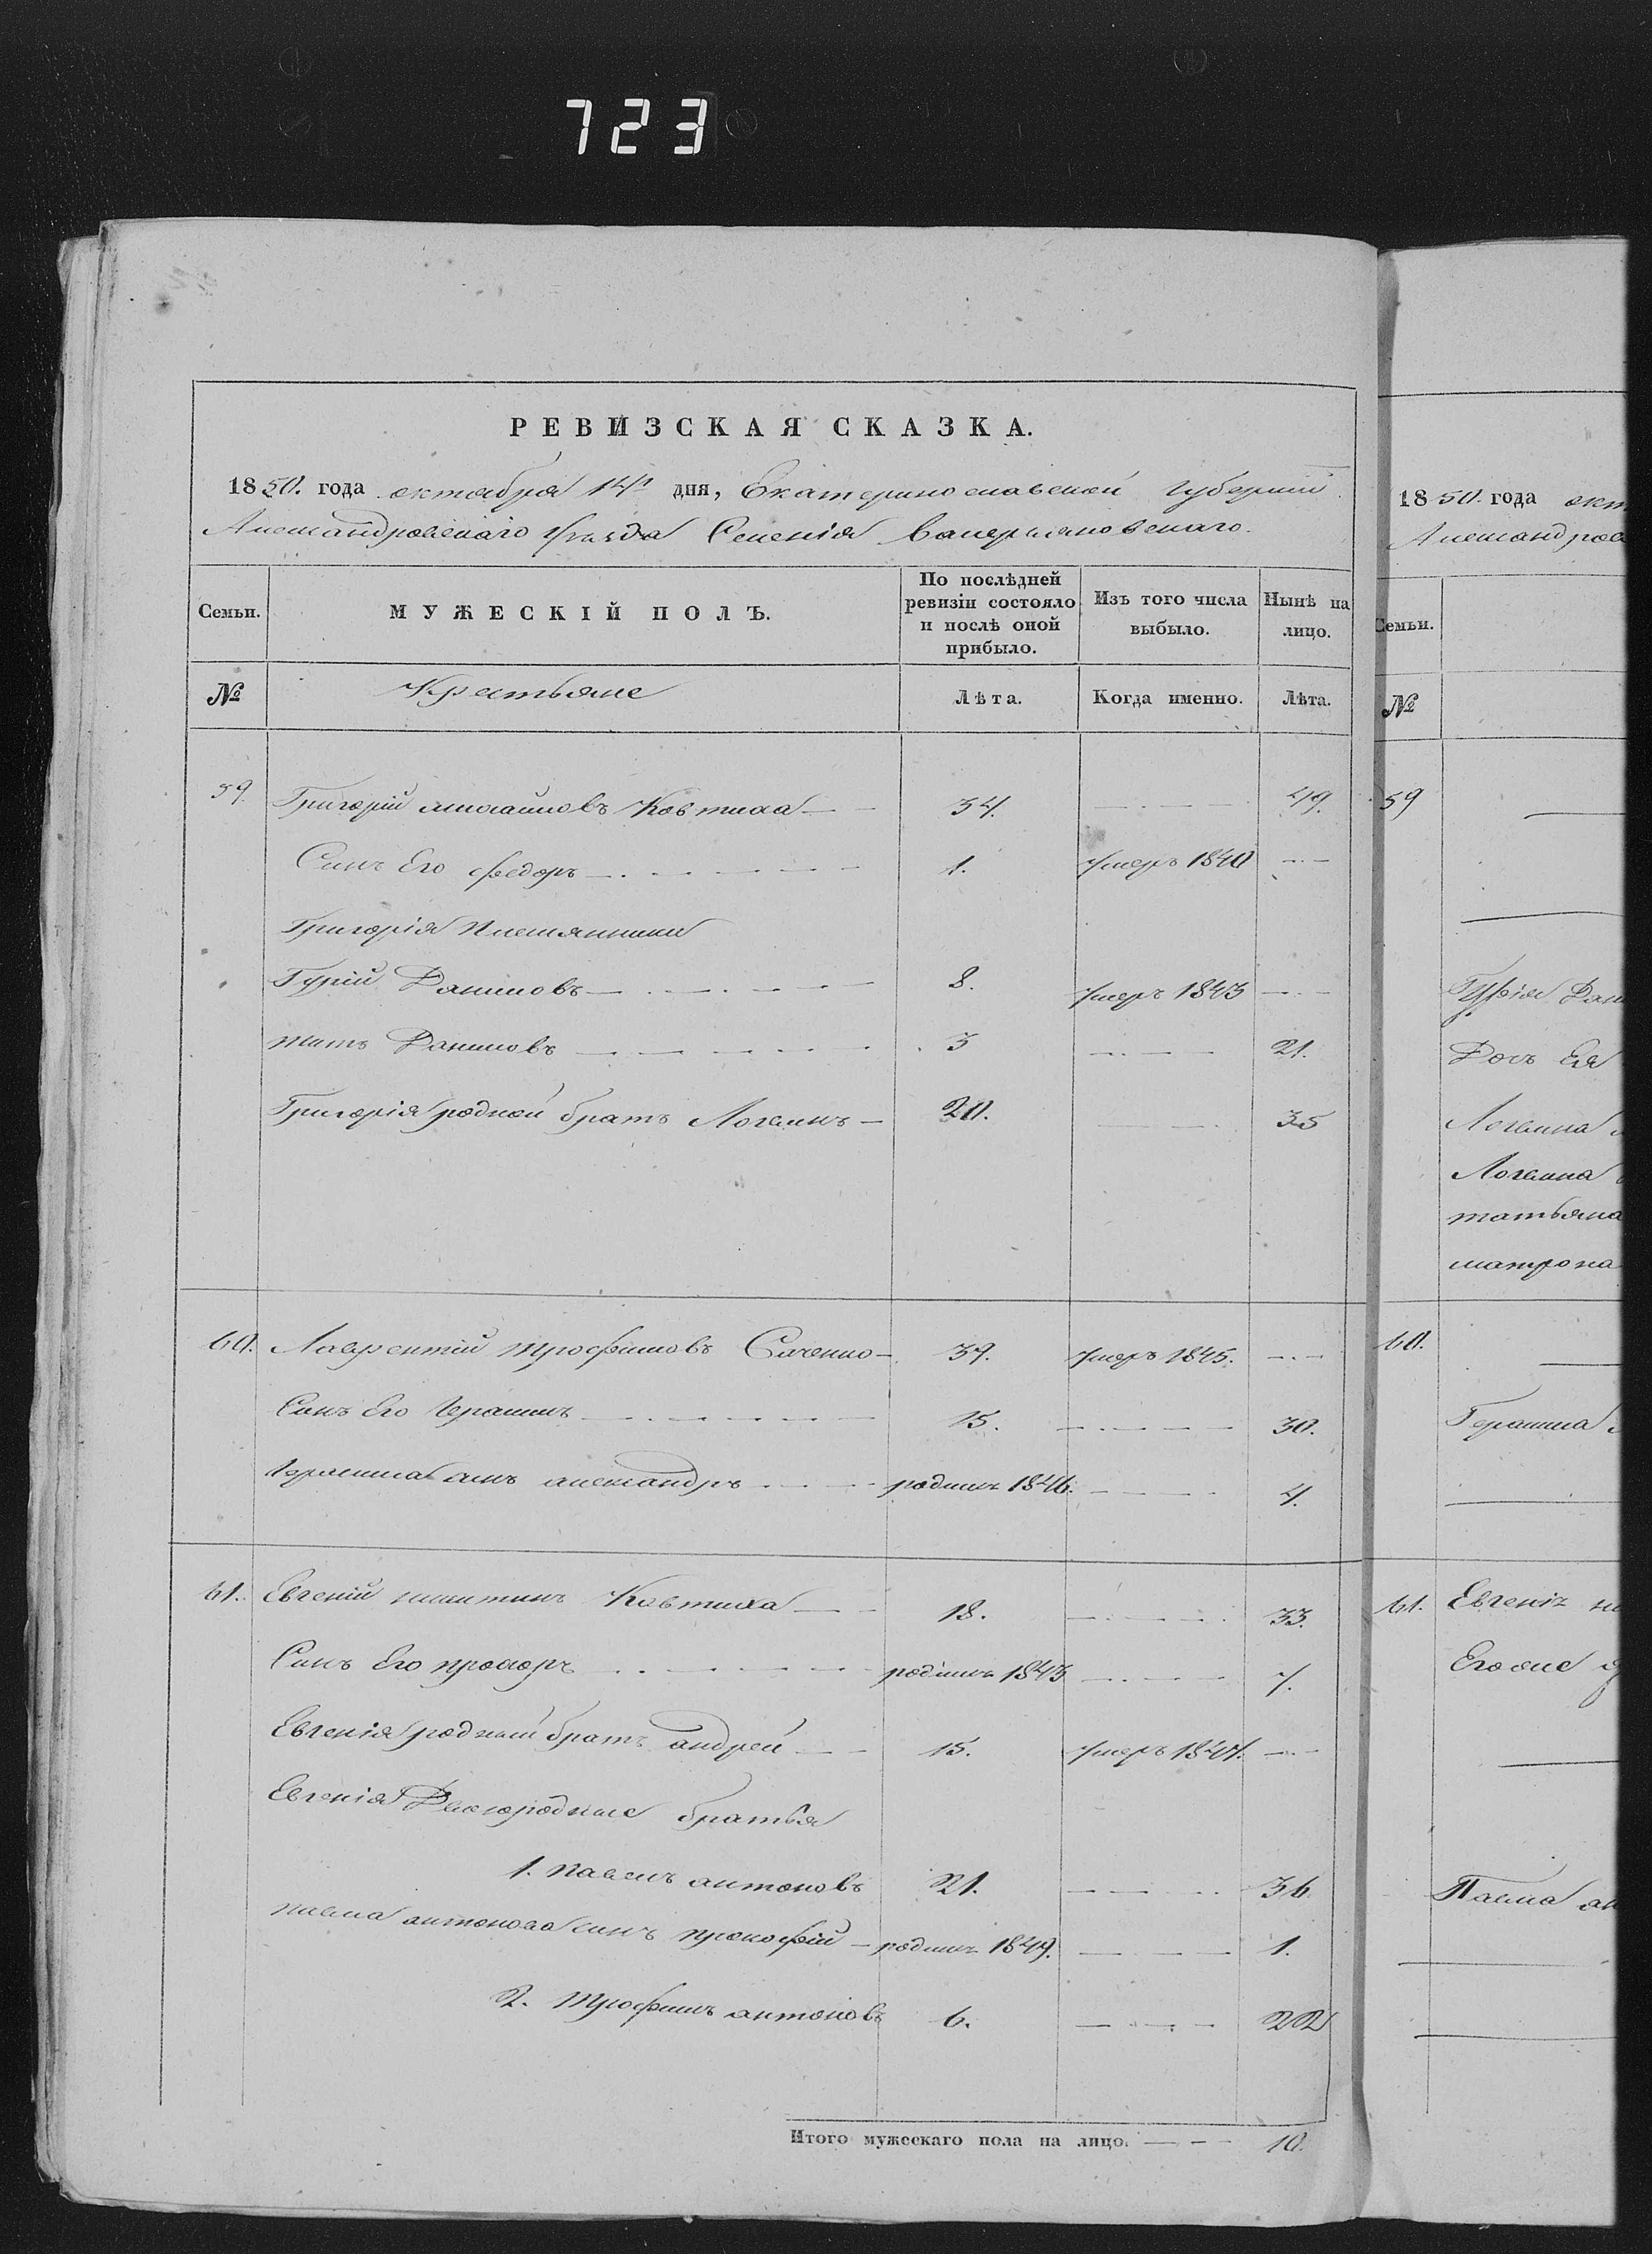 723
РЕВИЗСКАЯ СКАЗКА.
1850. года октября 14го дня, Екатеринославской губернии
Александровскаго уезда Селенія Валерьяновскаго.
Семьи.
МУЖЕСКІЙ ПОЛЪ.
По послѣдней ревизіи состояло и послѣ оной прибыло.
Изъ того числа выбыло.
Нынѣ на лицо.
№
Крестьяне
Лѣта.
Когда именно.
Лѣта.
59. Григорій Михайловъ Ковтиха 34. 49.
Синъ Его федоръ 1. умеръ 1840
Григорія Племянники
Гурій Даниловъ 8. умеръ 1843
Титъ Даниловъ 3 21.
Григорія родной братъ Логвинъ 20. 35
60. Лаврентій Трофимовъ Саченко 39. умеръ 1845.
Синъ Его Герасимъ 15. 30.
Герасима синъ александръ родился 1846. 4.
61. Евгеній никитинъ Ковтиха 18. 33.
Синъ Его прохоръ родился 1843 7.
Евгенія родный братъ андрей 15. умеръ 1841.
Евгенія Двоюродные братья
1. павелъ антоновъ 21. 36
павла антонова синъ прокофій родился 1849. 1.
2. Трофимъ антоновъ 6. 22
Итого мужескаго пола на лицо. 10.
1850. года окт
Александров
Семьи.
№
59
Гурія Дан
Дочь Ея
Логвина
Логвина
татьяна
матрона
60.
Герасима
61. Евгенія ни
Егоже
Павла ан